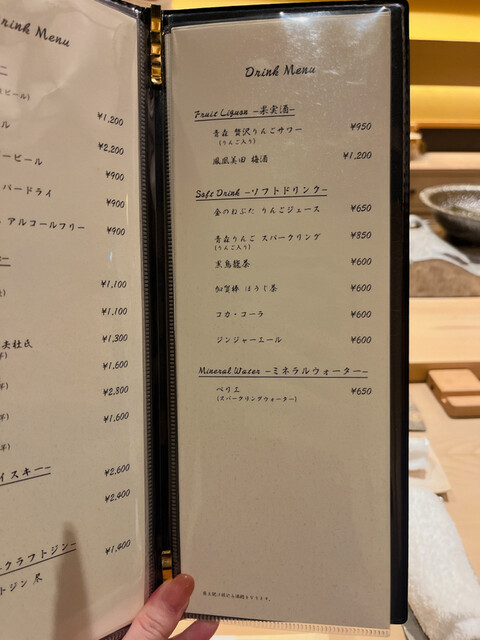 Drink Menu
ビール)
¥1,200
ービール ¥2,200
¥900
パードライ ¥900
アルコールフリー ¥900
¥1,100
¥1,100
¥1,300
¥1,600
¥2,300
¥1,600
イスキー–
¥2,600
¥2,400
クラフトジン–
¥1,400
Drink Menu
Fruit Liquor –果実酒–
青森 贅沢りんごサワー ¥950
(りんご入り)
鳳凰美田 梅酒 ¥1,200
Soft Drink –ソフトドリンク–
金のねぶた りんごジュース ¥650
青森りんご スパークリング ¥850
(りんご入り)
黒烏龍茶 ¥600
加賀棒 ほうじ茶 ¥600
コカ・コーラ ¥600
ジンジャーエール ¥600
Mineral Water –ミネラルウォーター–
ペリエ ¥650
(スパークリングウォーター)